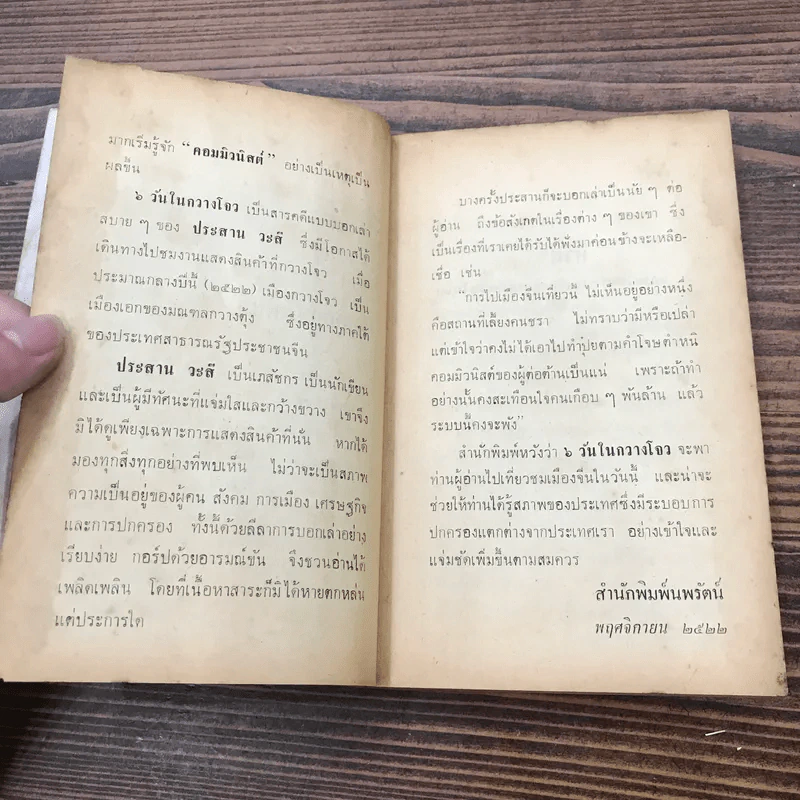 มากเริ่มรู้จัก “คอมมิวนิสต์” อย่างเป็นเหตุเป็น
ผลขึ้น
๖ วันในกวางโจว เป็นสารคดีแบบบอกเล่า
สบาย ๆ ของ ประสาน วะสี ซึ่งมีโอกาสได้
เดินทางไปชมงานแสดงสินค้าที่กวางโจว เมื่อ
ประมาณกลางปีนี้ (๒๕๒๒) เมืองกวางโจว เป็น
เมืองเอกของมณฑลกวางตุ้ง ซึ่งอยู่ทางภาคใต้
ของประเทศสาธารณรัฐประชาชนจีน
ประสาน วะสี เป็นเภสัชกร เป็นนักเขียน
และเป็นผู้มีทัศนะที่แจ่มใสและกว้างขวาง เขาจึง
มิได้ดูเพียงเฉพาะการแสดงสินค้าที่นั่น หากได้
มองทุกสิ่งทุกอย่างที่พบเห็น ไม่ว่าจะเป็นสภาพ
ความเป็นอยู่ของผู้คน สังคม การเมือง เศรษฐกิจ
และการปกครอง ทั้งนี้ด้วยลีลาการบอกเล่าอย่าง
เรียบง่าย กอร์ปด้วยอารมณ์ขัน จึงชวนอ่านได้
เพลิดเพลิน โดยที่เนื้อหาสาระก็มิได้หายตกหล่น
แต่ประการใด
บางครั้งประสานก็จะบอกเล่าเป็นนัย ๆ ต่อ
ผู้อ่าน ถึงข้อสังเกตในเรื่องต่าง ๆ ของเขา ซึ่ง
เป็นเรื่องที่เราเคยได้รับได้ฟังมาค่อนข้างจะเหลือ-
เชื่อ เช่น
“การไปเมืองจีนเที่ยวนี้ ไม่เห็นอยู่อย่างหนึ่ง
คือสถานที่เลี้ยงคนชรา ไม่ทราบว่ามีหรือเปล่า
แต่เข้าใจว่าคงไม่ได้เอาไปทำปุ๋ยตามคำโจษตำหนิ
คอมมิวนิสต์ของผู้ต่อต้านเป็นแน่ เพราะถ้าทำ
อย่างนั้นคงสะเทือนใจคนเกือบ ๆ พันล้าน แล้ว
ระบบนี้คงจะพัง”
สำนักพิมพ์หวังว่า ๖ วันในกวางโจว จะพา
ท่านผู้อ่านไปเที่ยวชมเมืองจีนในวันนี้ และน่าจะ
ช่วยให้ท่านได้รู้สภาพของประเทศซึ่งมีระบอบการ
ปกครองแตกต่างจากประเทศเรา อย่างเข้าใจและ
แจ่มชัดเพิ่มขึ้นตามสมควร
สำนักพิมพ์นพรัตน์
พฤศจิกายน ๒๕๒๒